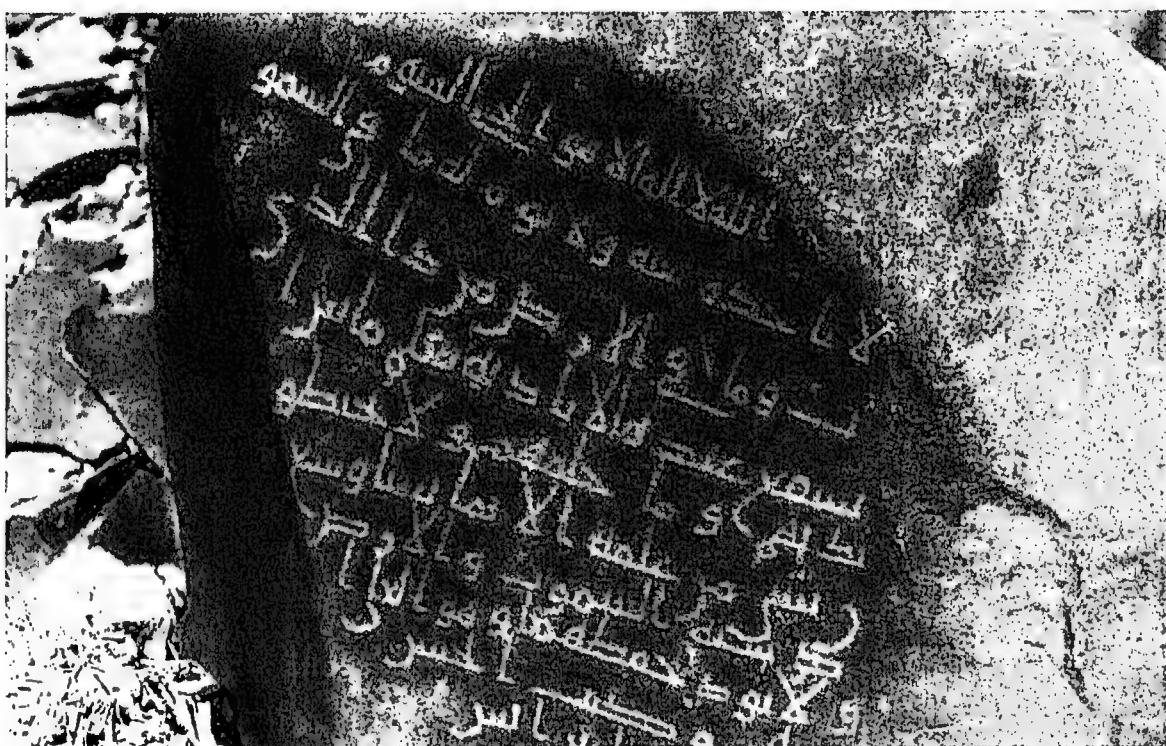 الله لا اله الا هو الحي القيوم
لا تاخذه سنة ولا نوم له ما في السمو
ت وما في الارض من ذا الذي
يشفع عنده الا باذنه يعلم ما بين ا
يديهم وما خلفهم ولا يحيطو
ن بشي من علمه الا بما شا وسع
كرسيه السموت والارض
ولا يوده حفظهما وهو العلي